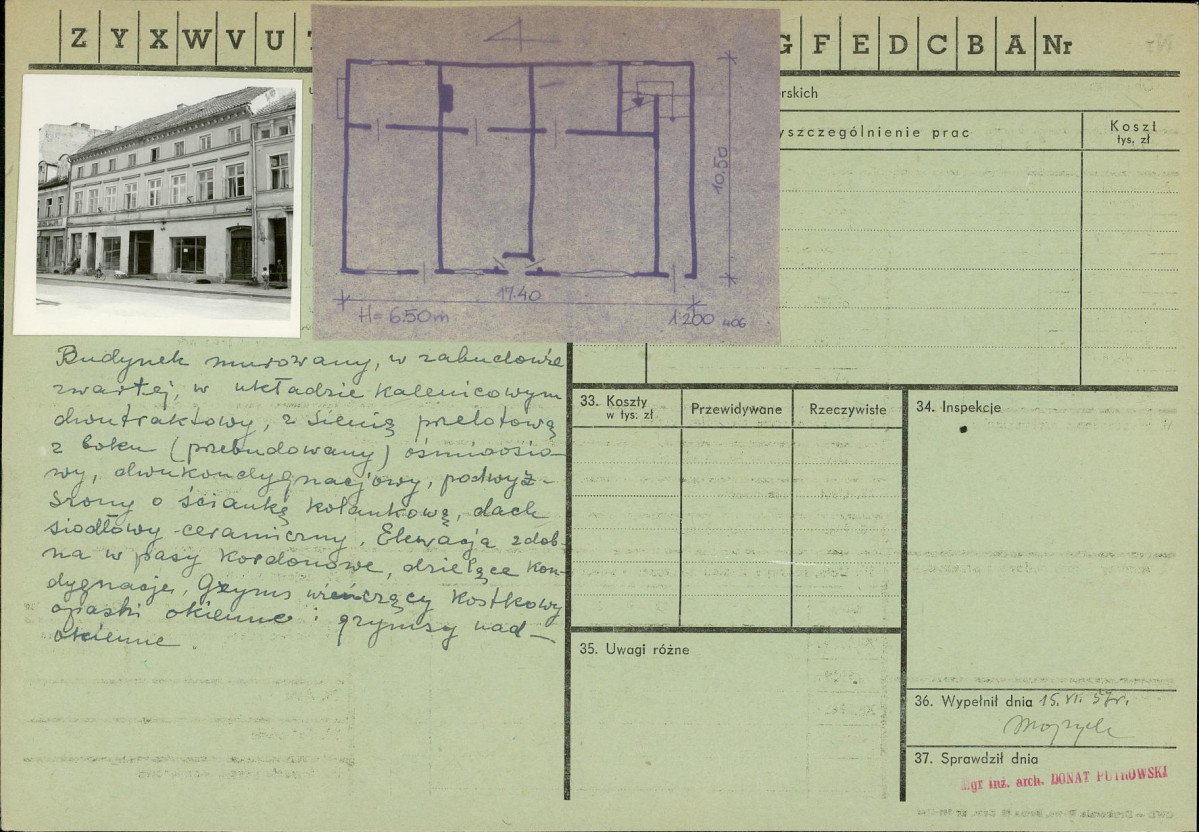 Z Y X W V U
G F E D C B A Nr
rskich
yszczególnienie prac
Koszt
tys. zł
10.50
17.40
H = 6.50 m
1:200
Budynek murowany, w zabudowie
zwartej, w układzie kalenicowym
dwutraktowy, z sienią przelotową
z boku (przebudowany) ośmioosio-
wy, dwukondygnacjowy, podwyż-
szony o ściankę kolankową, dach
siodłowy ceramiczny. Elewacja zdob-
na w pasy kordonowe, dzielące kon-
dygnacje. Gzyms wieńczący kostkowy
opaski okienne i gzymsy nad-
okienne.
33. Koszty
w tys. zł
Przewidywane
Rzeczywiste
34. Inspekcje
35. Uwagi różne
36. Wypełnił dnia 15. VI. 59r.
37. Sprawdził dnia
Mgr inż. arch. DONAT PUTKOWSKI